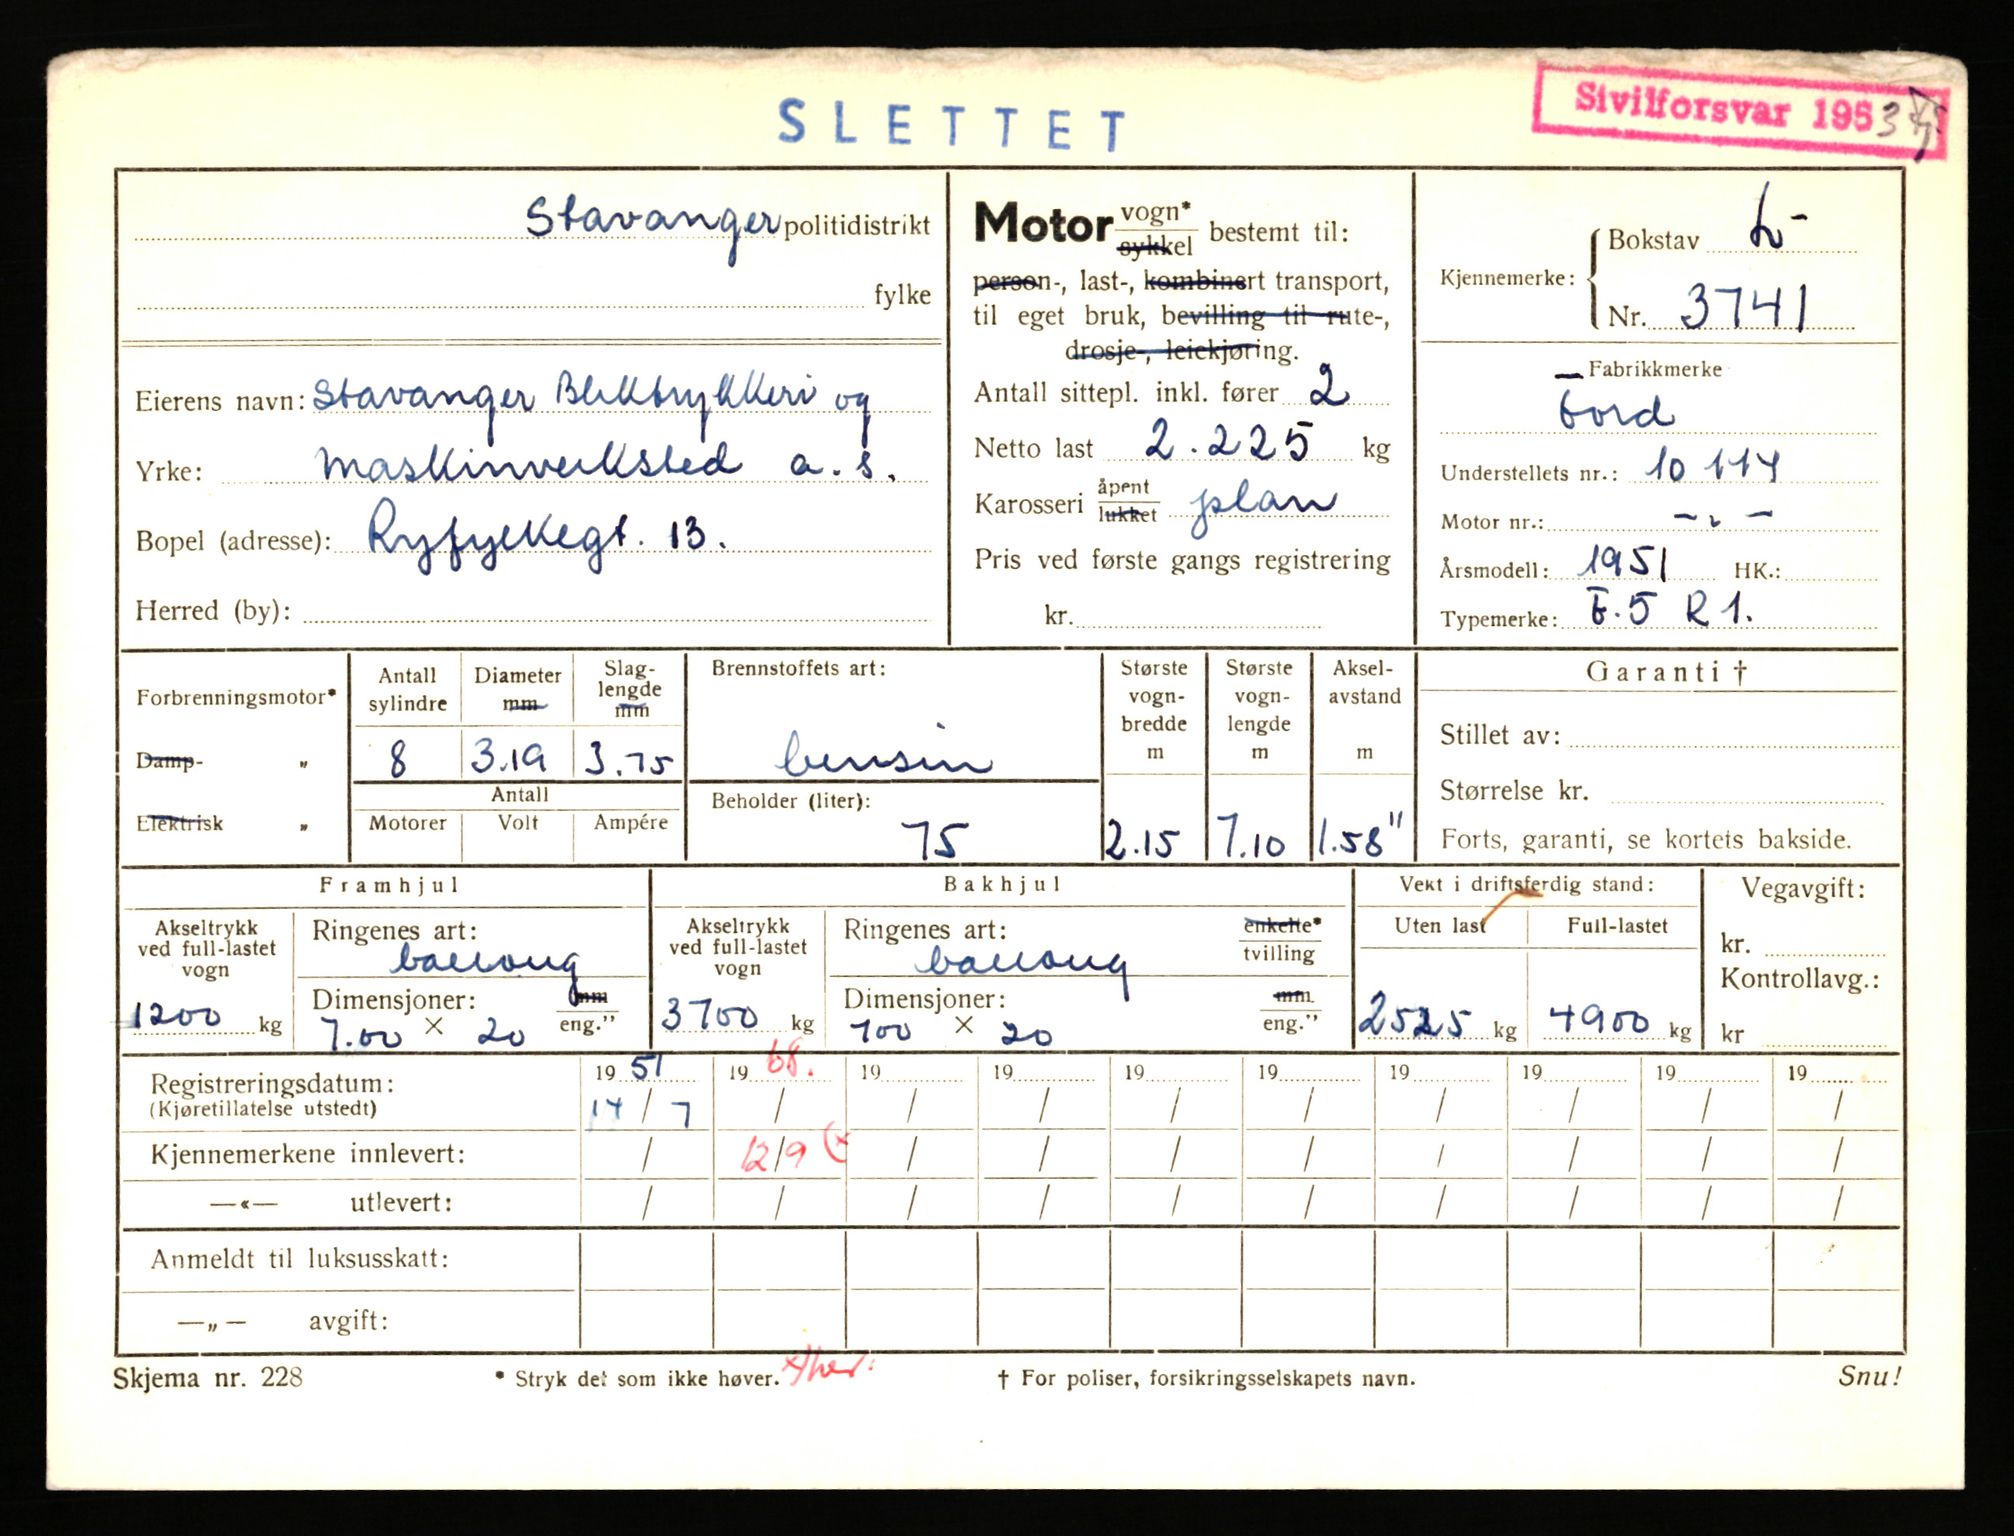 SLETTET
Sivilforsvar 1953
Stavanger politidistrikt
fylke
Eierens navn: Stavanger Blikktrykkeri og
Yrke: maskinverksted a.s.
Bopel (adresse): Ryfylkegt. 13.
Herred (by):
Motor vogn* sykkel bestemt til:
person-, last-, kombinert transport,
til eget bruk, bevilling til rute-,
drosje-, leiekjøring.
Antall sittepl. inkl. fører 2
Netto last 2.225 kg
Karosseri åpent lukket plan
Pris ved første gangs registrering
kr.
Kjennemerke: Bokstav L-
Nr. 3741
Fabrikkmerke
Ford
Understellets nr.: 10 114
Motor nr.: -"-
Årsmodell: 1951 HK.:
Typemerke: F.5 R1.
Forbrenningsmotor*
Damp- „
Elektrisk „
Antall sylindre 8
Diameter mm 3.19
Slag-lengde mm 3.75
Antall
Motorer Volt Ampére
Brennstoffets art:
bensin
Beholder (liter):
75
Største vogn-bredde m 2.15
Største vogn-lengde m 7.10
Aksel-avstand m 1.58"
Garanti †
Stillet av:
Størrelse kr.
Forts, garanti, se kortets bakside.
Framhjul
Akseltrykk ved full-lastet vogn
1200 kg
Ringenes art:
ballong
Dimensjoner: mm eng.”
7.00 × 20
Bakhjul
Akseltrykk ved full-lastet vogn
3700 kg
Ringenes art: enkelte* tvilling
ballong
Dimensjoner: mm. eng.”
700 × 20
Vekt i driftsferdig stand:
Uten last Full-lastet
2525 kg 4900 kg
Vegavgift:
kr.
Kontrollavg.:
kr
Registreringsdatum: 1951 1968. 19 19 19 19 19 19 19 19
(Kjøretillatelse utstedt) 14/7 / / / / / / / / /
Kjennemerkene innlevert: / 12/9 (x / / / / / / / /
—«— utlevert: / / / / / / / / / /
Anmeldt til luksusskatt:
—„— avgift:
Skjema nr. 228
* Stryk det som ikke høver.
x) her.
† For poliser, forsikringsselskapets navn.
Snu!